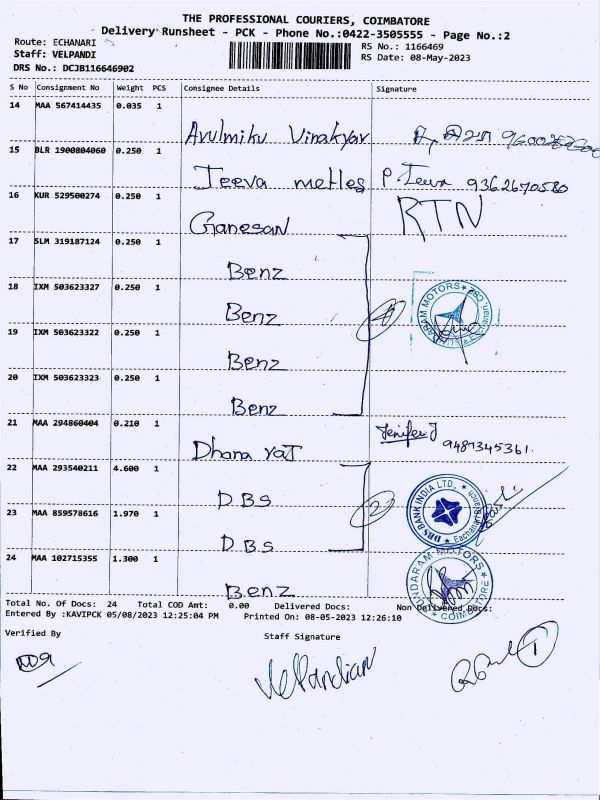 THE PROFESSIONAL COURIERS, COIMBATORE
Delivery Runsheet - PCK - Phone No.:0422-3505555 - Page No.:2
Route: ECHANARI
Staff: VELPANDI
DRS No.: DCJB116646902
RS No.: 1166469
RS Date: 08-May-2023
S No Consignment No Weight PCS Consignee Details Signature
14 MAA 567414435 0.035 1
Arulmiku Vinakyar
15 BLR 1900804060 0.250 1
Jeeva metles P. Jeeva 9362670580
16 KUR 529500274 0.250 1
Ganesan RTN
17 SLM 319187124 0.250 1
Benz
18 IXM 503623327 0.250 1
Benz 4
19 IXM 503623322 0.250 1
Benz
20 IXM 503623323 0.250 1
Benz
21 MAA 294860404 0.210 1
Dhana raj Jenifer J 9487345361.
22 MAA 293540211 4.600 1
DBS 2
DBS BANK INDIA LTD.,
23 MAA 859578616 1.970 1
DBS
24 MAA 102715355 1.300 1
Benz
SUNDARAM MOTORS COIMBATORE
Total No. Of Docs: 24 Total COD Amt: 0.00 Delivered Docs: Non Delivered Docs:
Entered By :KAVIPCK 05/08/2023 12:25:04 PM Printed On: 08-05-2023 12:26:10
Verified By Staff Signature
VelPandian